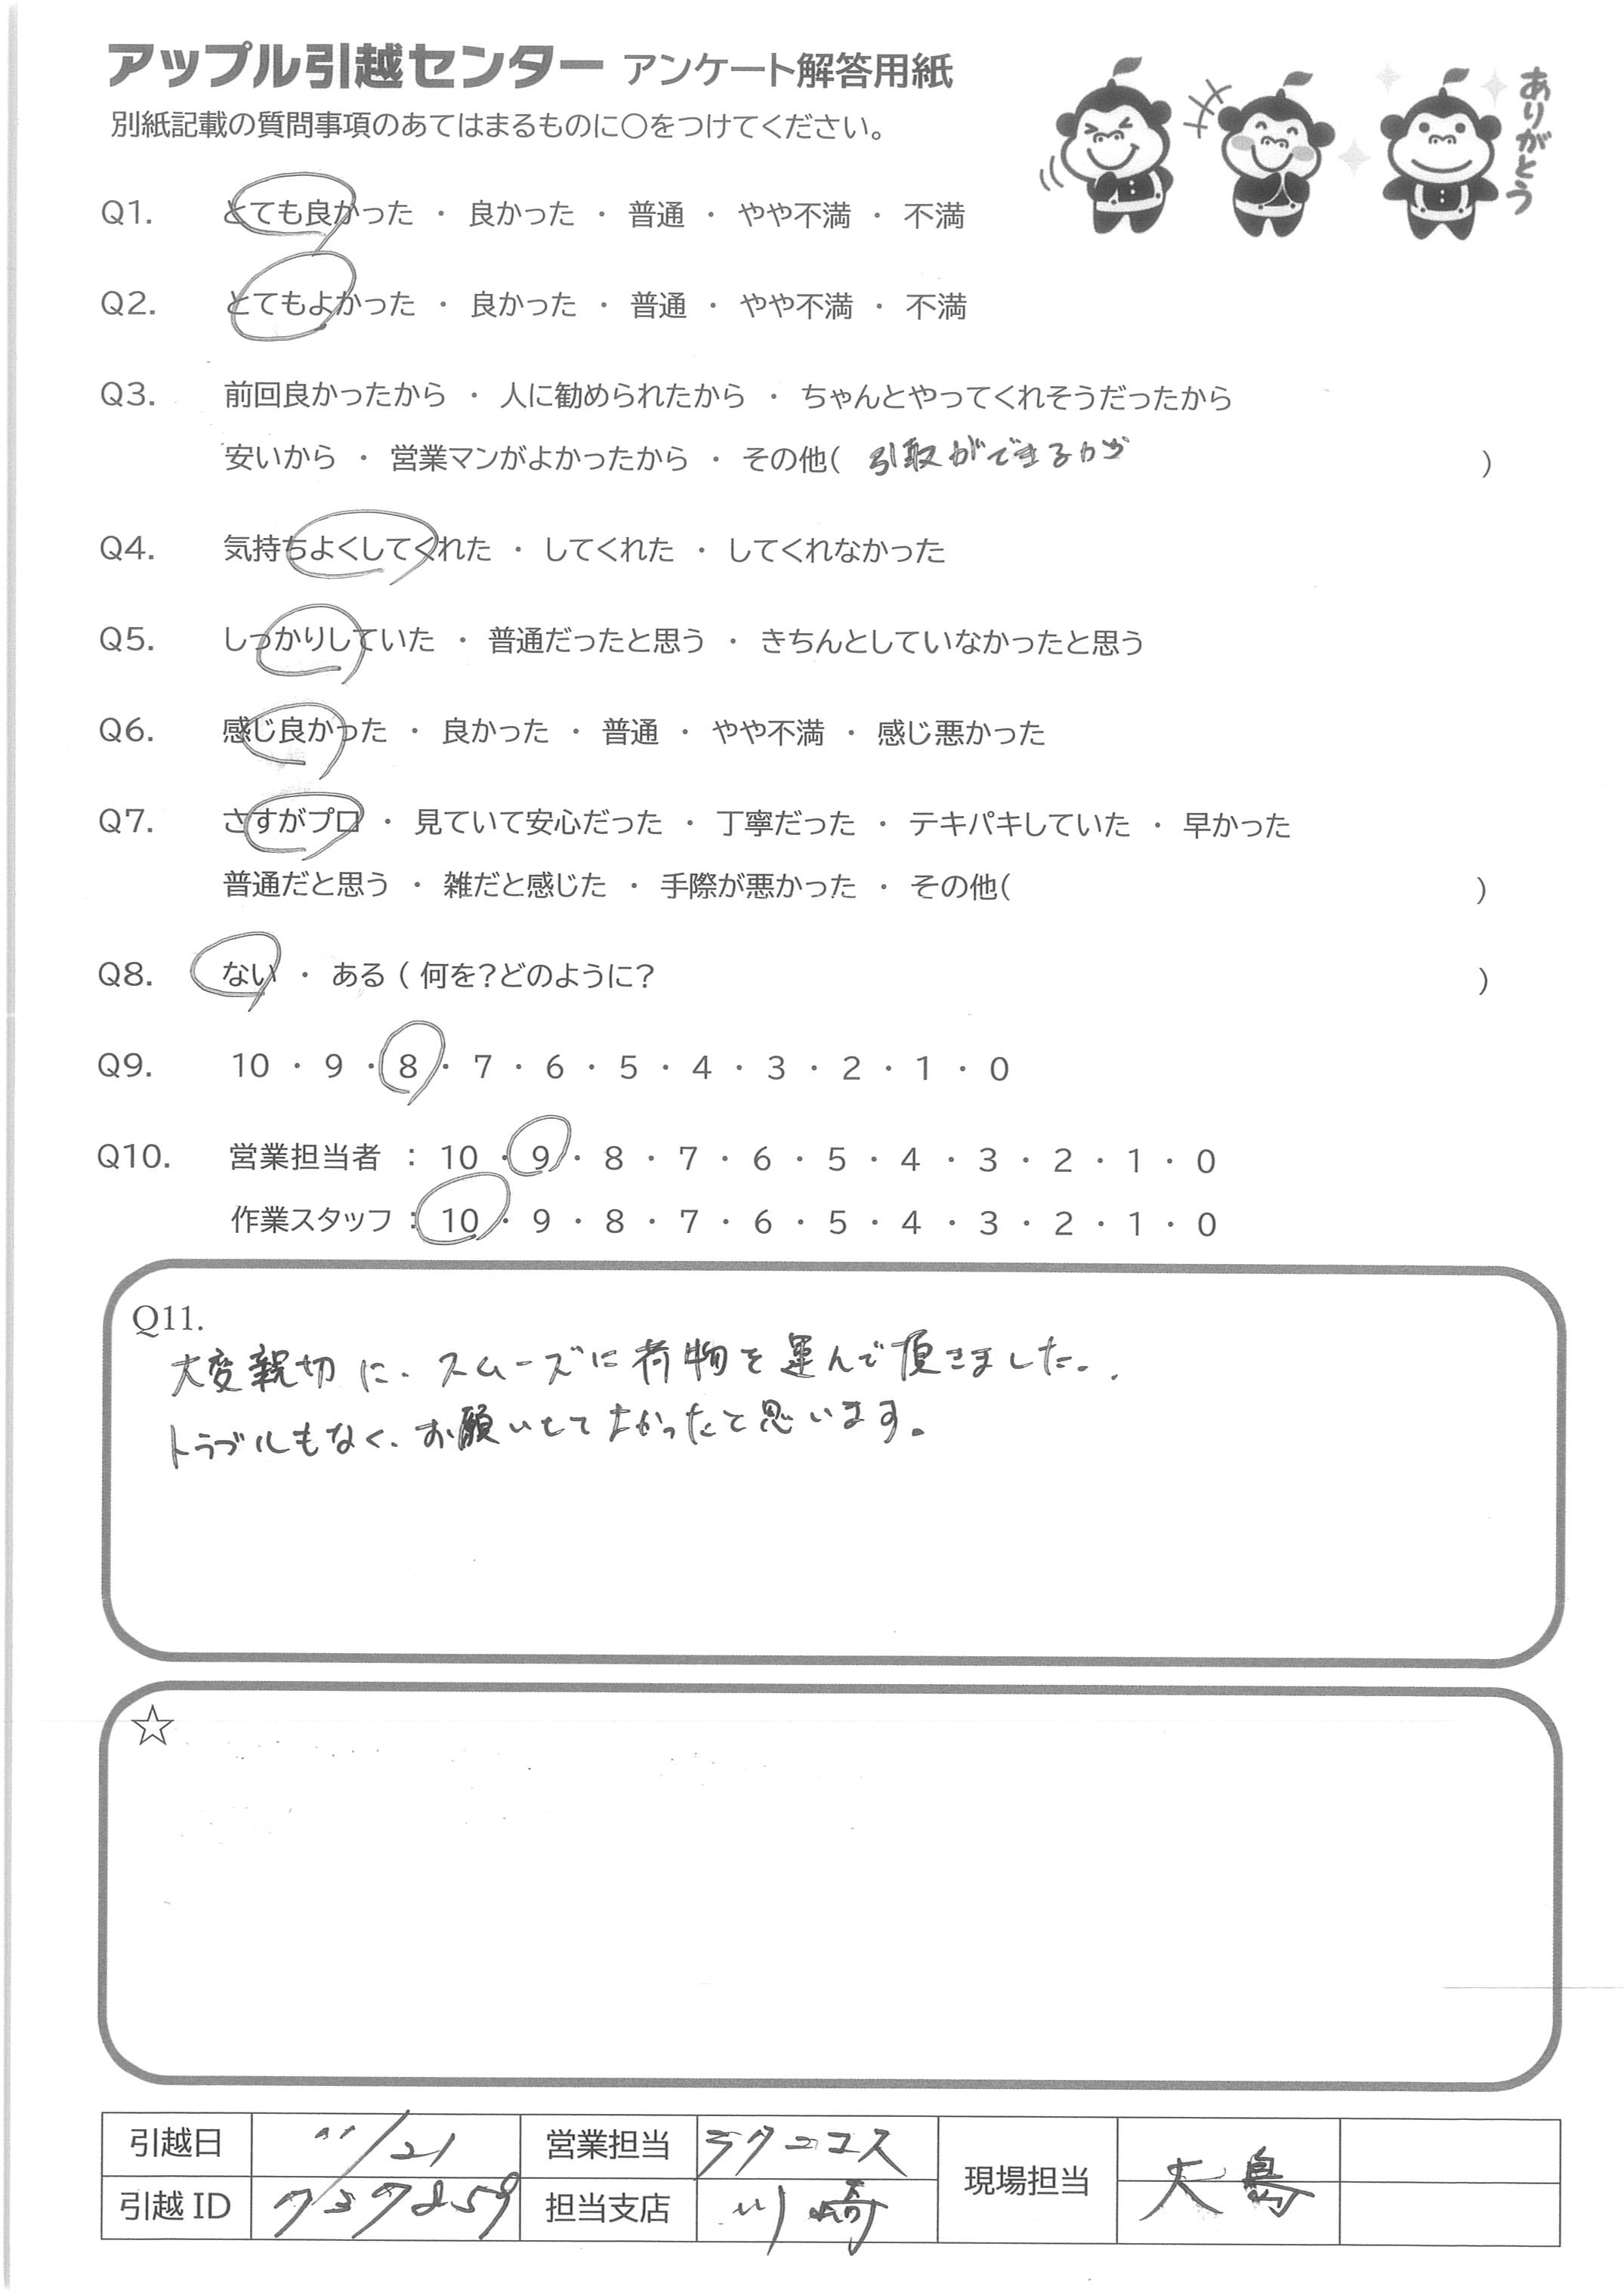 アップル引越センター アンケート解答用紙
別紙記載の質問事項のあてはまるものに○をつけてください。
ありがとう
Q1. とても良かった ・ 良かった ・ 普通 ・ やや不満 ・ 不満
Q2. とてもよかった ・ 良かった ・ 普通 ・ やや不満 ・ 不満
Q3. 前回良かったから ・ 人に勧められたから ・ ちゃんとやってくれそうだったから
安いから ・ 営業マンがよかったから ・ その他( 引取ができるから )
Q4. 気持ちよくしてくれた ・ してくれた ・ してくれなかった
Q5. しっかりしていた ・ 普通だったと思う ・ きちんとしていなかったと思う
Q6. 感じ良かった ・ 良かった ・ 普通 ・ やや不満 ・ 感じ悪かった
Q7. さすがプロ ・ 見ていて安心だった ・ 丁寧だった ・ テキパキしていた ・ 早かった
普通だと思う ・ 雑だと感じた ・ 手際が悪かった ・ その他( )
Q8. ない ・ ある ( 何を?どのように? )
Q9. 10 ・ 9 ・ 8 ・ 7 ・ 6 ・ 5 ・ 4 ・ 3 ・ 2 ・ 1 ・ 0
Q10. 営業担当者 : 10 ・ 9 ・ 8 ・ 7 ・ 6 ・ 5 ・ 4 ・ 3 ・ 2 ・ 1 ・ 0
作業スタッフ : 10 ・ 9 ・ 8 ・ 7 ・ 6 ・ 5 ・ 4 ・ 3 ・ 2 ・ 1 ・ 0
Q11.
大変親切に、スムーズに荷物を運んで頂きました。
トラブルもなく、お願いしてよかったと思います。
☆
引越日 11/21 営業担当 ラクニコス 現場担当 大島
引越ID 7397859 担当支店 川崎